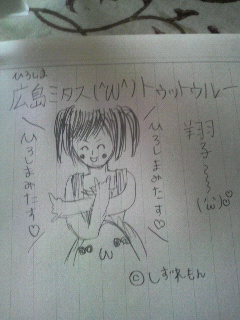 ひろしま
広島ミタス(^ω^)トゥットゥルー
\ひろしまみたす♡/
\ひろしまみたす♡/
翔子~~~(´ω`)♡♡
ω
©しずれもん